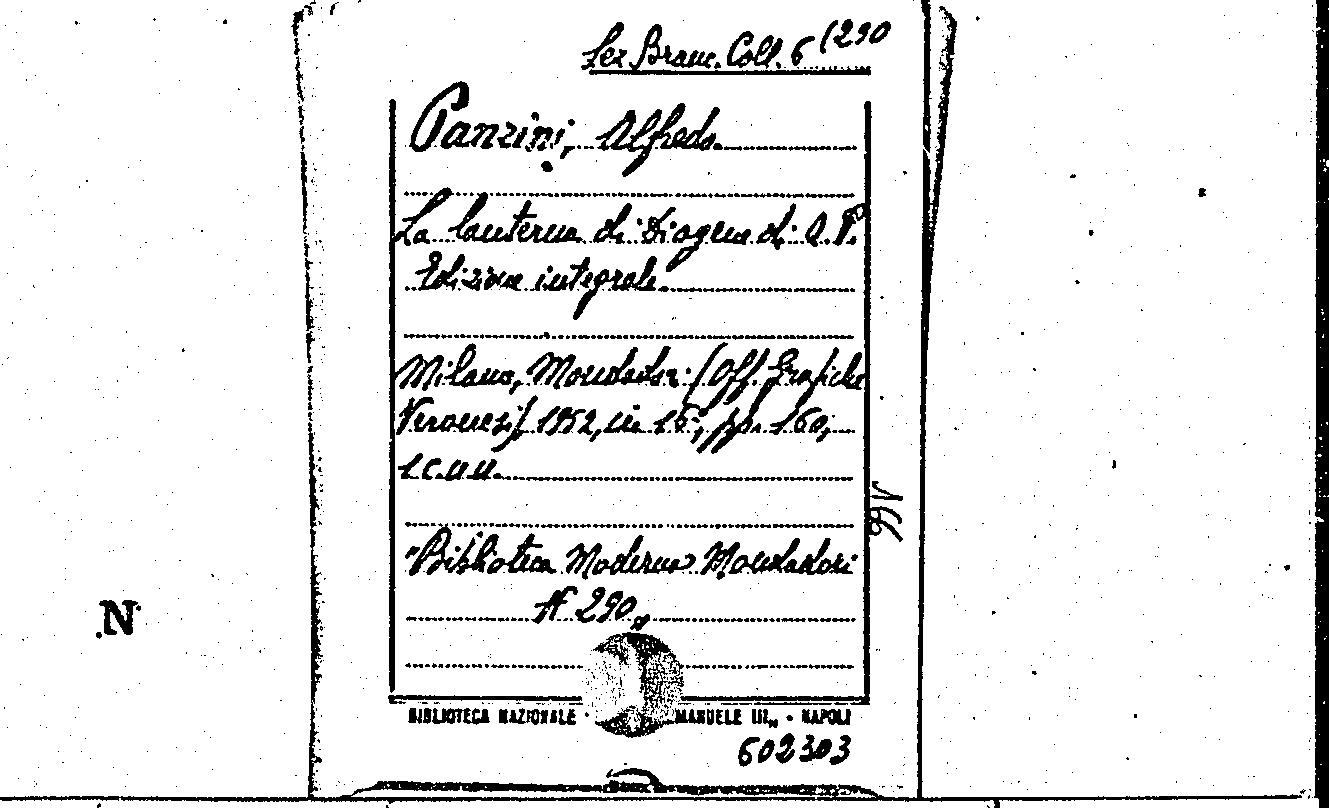 Sez. Branc. Coll. 6 (290
Panzini, Alfredo.
La lanterna di Diogene di A. P.
Edizione integrale.
Milano, Mondadori (Off. Grafiche
Veronesi), 1952, in 16°, pp. 160,
s.c.n.n.
166
"Biblioteca Moderna Mondadori
N 290"
N
BIBLIOTECA NAZIONALE · MANUELE III,, · NAPOLI
602303